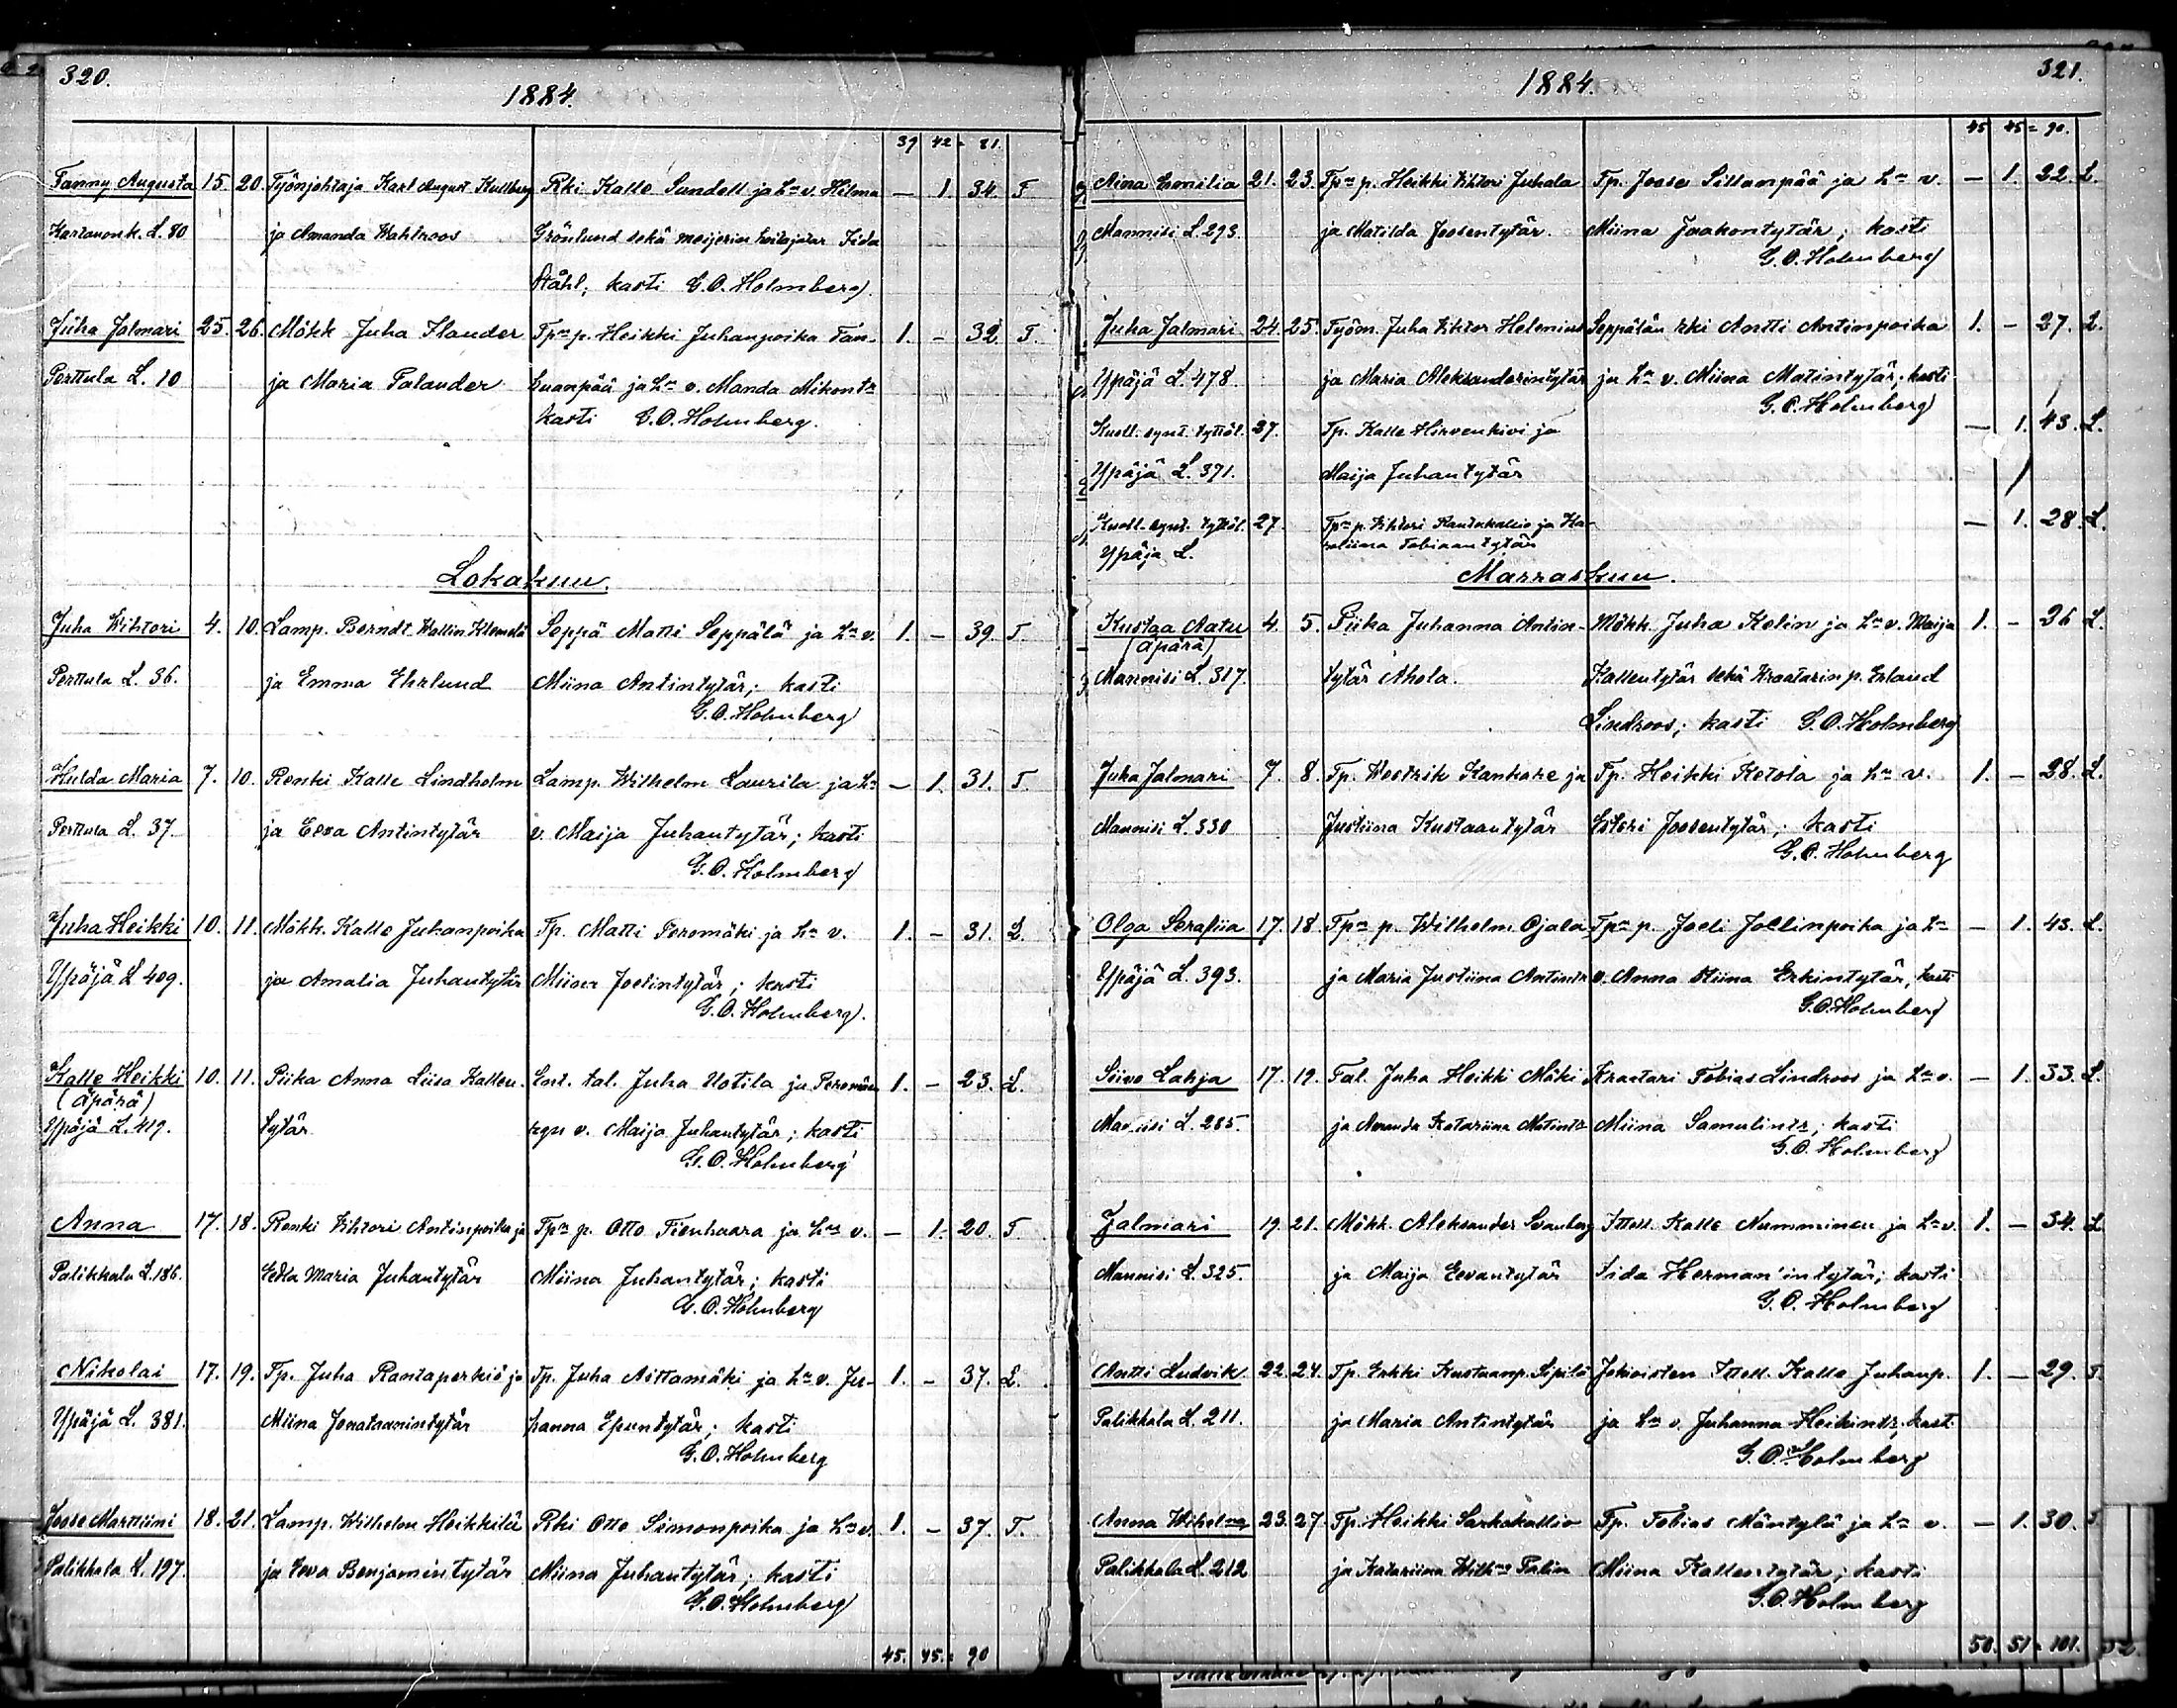 320.
1884.
39 42 = 81.
Fanny Augusta 15. 20. Työnjohtaja Karl August Kullberg Rki Kalle Sundell ja hra v. Hilma — 1. 34. T.
Kartanonk. L. 80 ja Amanda Wahlroos Grönlund sekä meijerin
Ståhl; kasti G. O. Holmberg.
Juha Jalmari 25. 26. Mökk Juha Flander Tpn p. Heikki Juhanpoika Tan- 1. — 32. T.
Perttula L. 10 ja Maria Palander huanpää ja hn v. Manda Mikontr
kasti G. O. Holmberg.
Lokakuu.
Juha Wihtori 4. 10. Lamp. Berndt Wallin Klemelä Seppä Matti Seppälä ja hn v. 1. — 39. T.
Perttula L. 36. ja Emma Ehrlund Miina Antintytär; kasti
G. O. Holmberg
Hulda Maria 7. 10. Renki Kalle Lindholm Lamp. Wilhelm Laurila ja hn — 1. 31. T.
Perttula L. 37. ja Eeva Antintytär v. Maija Juhantytär; kasti
G. O. Holmberg
Juha Heikki 10. 11. Mökk. Kalle Juhanpoika Tp. Matti Peromäki ja hn v. 1. — 31. L.
Ypäjä L 409. ja Amalia Juhantytär Miina Joelintytär; kasti
G. O. Holmberg.
Kalle Heikki 10. 11. Piika Anna Liisa Kallen- Ent. tal. Juha Uotila ja Peromäen 1. — 23. L.
(äpärä)
Ypäjä L. 419. tytär v. Maija Juhantytär; kasti
G. O. Holmberg
Anna 17. 18. Renki Vihtori Antinpoika ja Tpn p. Otto Tienhaara ja hn v. — 1. 20. T
Palikkala L. 186. Edla Maria Juhantytär Miina Juhantytär; kasti
G. O. Holmberg
Nikolai 17. 19. Tp. Juha Rantaperkiö ja Tp. Juha Aittamäki ja hn v. Ju- 1. — 37. L.
Ypäjä L. 381. Miina Jonataanintytär hanna Epuntytär; kasti
G. O. Holmberg
Joose Marttiini 18. 21. Lamp. Wilhelm Heikkilä Rki Otto Simonpoika ja hn v. 1. — 37. T.
Palikkala L. 197. ja Eeva Benjamintytär Miina Juhantytär; kasti
G. O. Holmberg
45. 45. = 90
321.
1884.
45 45 = 90.
Aina Emilia 21. 23. Tpn p. Heikki Vihtori Juhala Tp. Joose Sillanpää ja hn v. — 1. 22. L.
Mannisi L. 293. ja Matilda Joosentytär. Miina Jaakontytär; kasti
G. O. Holmberg
Juha Jalmari 24. 25. Työm. Juha Viktor Helenius Seppälän rki Antti Antinpoika 1. — 27. L.
Ypäjä L. 478. ja Maria Aleksanderintytär ja hn v. Miina Matintytär; kasti
G. O. Holmberg
Kuoll. synt. tyttöl. 27. Tp. Kalle Hirvenkivi ja — 1. 43. L.
Ypäjä L. 371. Maija Juhantytär
Kuoll. synt. tyttöl. 27. Tpn p. Vihtori Rantakallio ja Ka- — 1. 28. L.
Ypäjä L. roliina Tobiaantytär
Marraskuu.
Kustaa Aatu 4. 5. Piika Juhanna Antin- Mökk. Juha Kelin ja hn v. Maija 1. — 26 L.
(äpärä)
Mannisi L. 317. tytär Ahola. Kallentytär sekä Kraatarin p. Erland
Lindroos; kasti G. O. Holmberg
Juha Jalmari 7. 8. Tp. Westrik Kankare ja Tp. Heikki Ketola ja hn v. 1. — 28. L.
Mannisi L. 330 Justiina Kustaantytär Esteri Joosentytär; kasti
G. O. Holmberg
Olga Serafiia 17. 18. Tpn p. Wilhelm Ojala Tpn p. Joeli Joellinpoika ja hn — 1. 43. L.
Ypäjä L. 393. ja Maria Justiina Antintr v. Anna Stiina Erkintytär, kasti
G. O. Holmberg
Siivo Lahja 17. 19. Tal. Juha Heikki Mäki Kraatari Tobias Lindroos ja hn v. — 1. 33. L.
Mannisi L. 285. ja Amanda Katariina Matintr Miina Samulintr; kasti
G. O. Holmberg
Jalmari 19. 21. Mökk. Aleksander Svanberg Ittell. Kalle Numminen ja hn v. 1. — 34. L
Mannisi L. 325. ja Maija Eevantytär Iida Herman'intytär; kasti
G. O. Holmberg
Antti Ludvik 22. 24. Tp. Erkki Kustaanp. Sipilä Jokioisten Ittell. Kalle Juhanp. 1. — 29. T.
Palikkala L. 211. ja Maria Antintytär ja hn v. Juhanna Heikintr; kasti
G. O. Holmberg
Anna Wihelma 23. 27. Tp. Heikki Sarkakallio Tp. Tobias Mäntylä ja hn v. — 1. 30. T
Palikkala L. 212 ja Katariina Miina Kallentytär; kasti
G. O. Holmberg
50. 51 = 101.